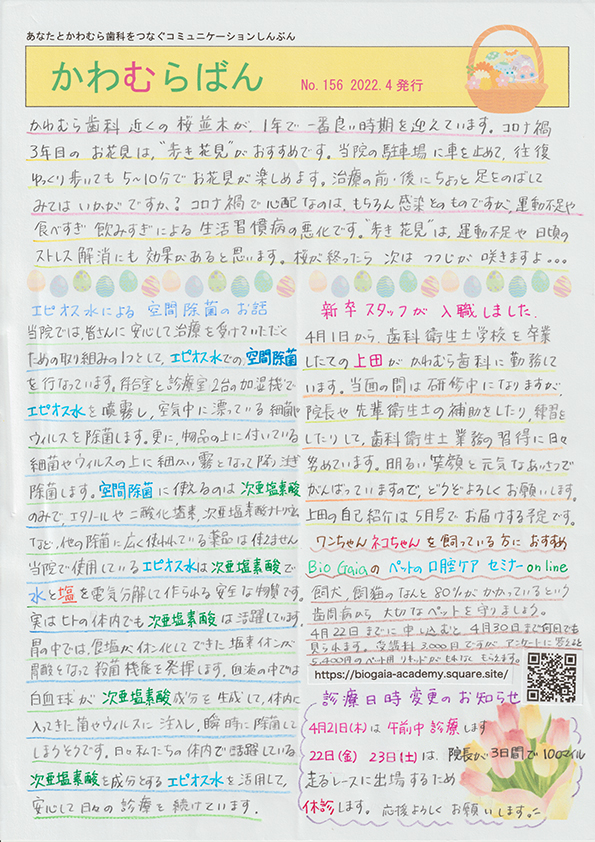 あなたとかわむら歯科をつなぐコミュニケーションしんぶん
かわむらばん
No.156 2022.4発行
かわむら歯科近くの桜並木が、1年で一番良い時期を迎えています。コロナ禍
3年目のお花見は、"歩き花見"がおすすめです。当院の駐車場に車を止めて、往復
ゆっくり歩いても5〜10分でお花見が楽しめます。治療の前・後にちょっと足をのばして
みてはいかがですか?コロナ禍で心配なのは、もちろん感染そのものですが、運動不足や
食べすぎ飲みすぎによる生活習慣病の悪化です。"歩き花見"は、運動不足や日頃の
ストレス解消にも効果があると思います。桜が終ったら次はつつじが咲きますよ…
エピオス水による空間除菌のお話
当院では、皆さんに安心して治療を受けていただく
ための取り組みの1つとして、エピオス水での空間除菌
を行なっています。待合室と診療室2台の加湿機で
エピオス水を噴霧し、空気中に漂っている細菌や
ウィルスを除菌します。更に、物品の上に付いている
細菌やウィルスの上に細かい霧となって降り注ぎ
除菌します。空間除菌に使えるのは次亜塩素酸
のみで、エタノールや二酸化塩素、次亜塩素酸ナトリウム
など、他の除菌に広く使われている薬品は使えません
当院で使用しているエピオス水は次亜塩素酸で
水と塩を電気分解して作られる安全な物質です。
実はヒトの体内でも次亜塩素酸は活躍しています。
胃の中では、食塩がイオン化してできた塩素イオンが
胃酸となって殺菌機能を発揮します。血液の中では
白血球が次亜塩素酸成分を生成して、体内に
入ってきた菌やウィルスに注入し、瞬時に除菌して
しまうそうです。日々私たちの体内で活躍している
次亜塩素酸を成分とするエピオス水を活用して、
安心して日々の診療を続けています。
新卒スタッフが入職しました。
4月1日から、歯科衛生士学校を卒業
したての上田がかわむら歯科に勤務して
います。当面の間は研修中になりますが、
院長や先輩衛生士の補助をしたり、練習を
したりして、歯科衛生士業務の習得に日々
努めています。明るい笑顔と元気なあいさつで
がんばっていますので、どうぞよろしくお願いします。
上田の自己紹介は5月号でお届けする予定です。
ワンちゃんネコちゃんを飼っている方におすすめ
BioGaiaのペットの口腔ケアセミナーonline
飼犬、飼猫のなんと80%がかかっているという
歯周病から大切なペットを守りましょう。
4月22日までに申し込むと、4月30日まで何回でも
見られます。受講料3,000円ですがアンケートに答えると
5,400円のペット用リキッドがもれなくもらえます。
https://biogaia-academy.square.site/
診療日時変更のお知らせ
4月21日(木)は午前中診療します
22日(金) 23日(土)は、院長が3日間で100マイル
走るレースに出場するため
休診します。応援よろしくお願いします。